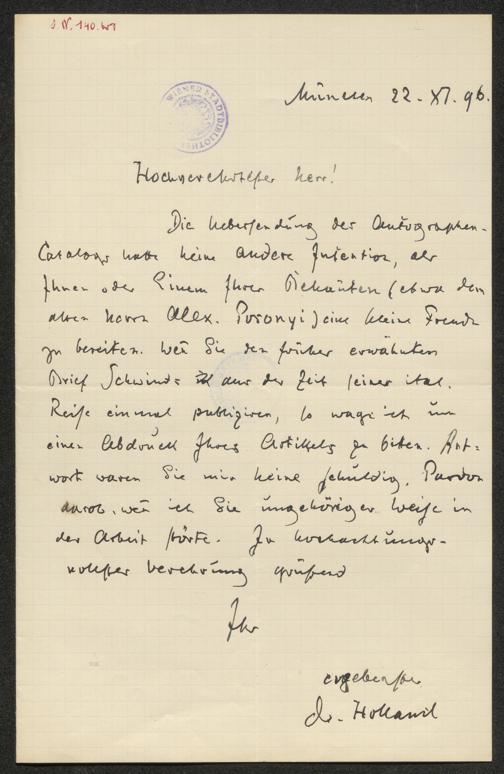 J. N. 140.651
WIENER STADTBIBLIOTHEK
München 22. XI. 96.
Hochverehrtester Herr!
Die Uebersendung des Autographen-
Catalogs hatte keine andere Intention, als
Ihnen oder Einem Ihrer Bekañten (etwa dem
alten Herrn Alex. Posonyi) eine kleine Freude
zu bereiten. Weñ Sie den früher erwähnten
Brief Schwinds aus der Zeit seiner ital.
Reise einmal publiziren, so wage ich um
einen Abdruck Ihres Artikels zu bitten. Ant=
wort waren Sie mir keine schuldig. Pardon
darob, weñ ich Sie ungehöriger Weise in
der Arbeit störte. In hochachtungs-
vollster Verehrung grüßend
Ihr
ergebenster
Dr. Holland